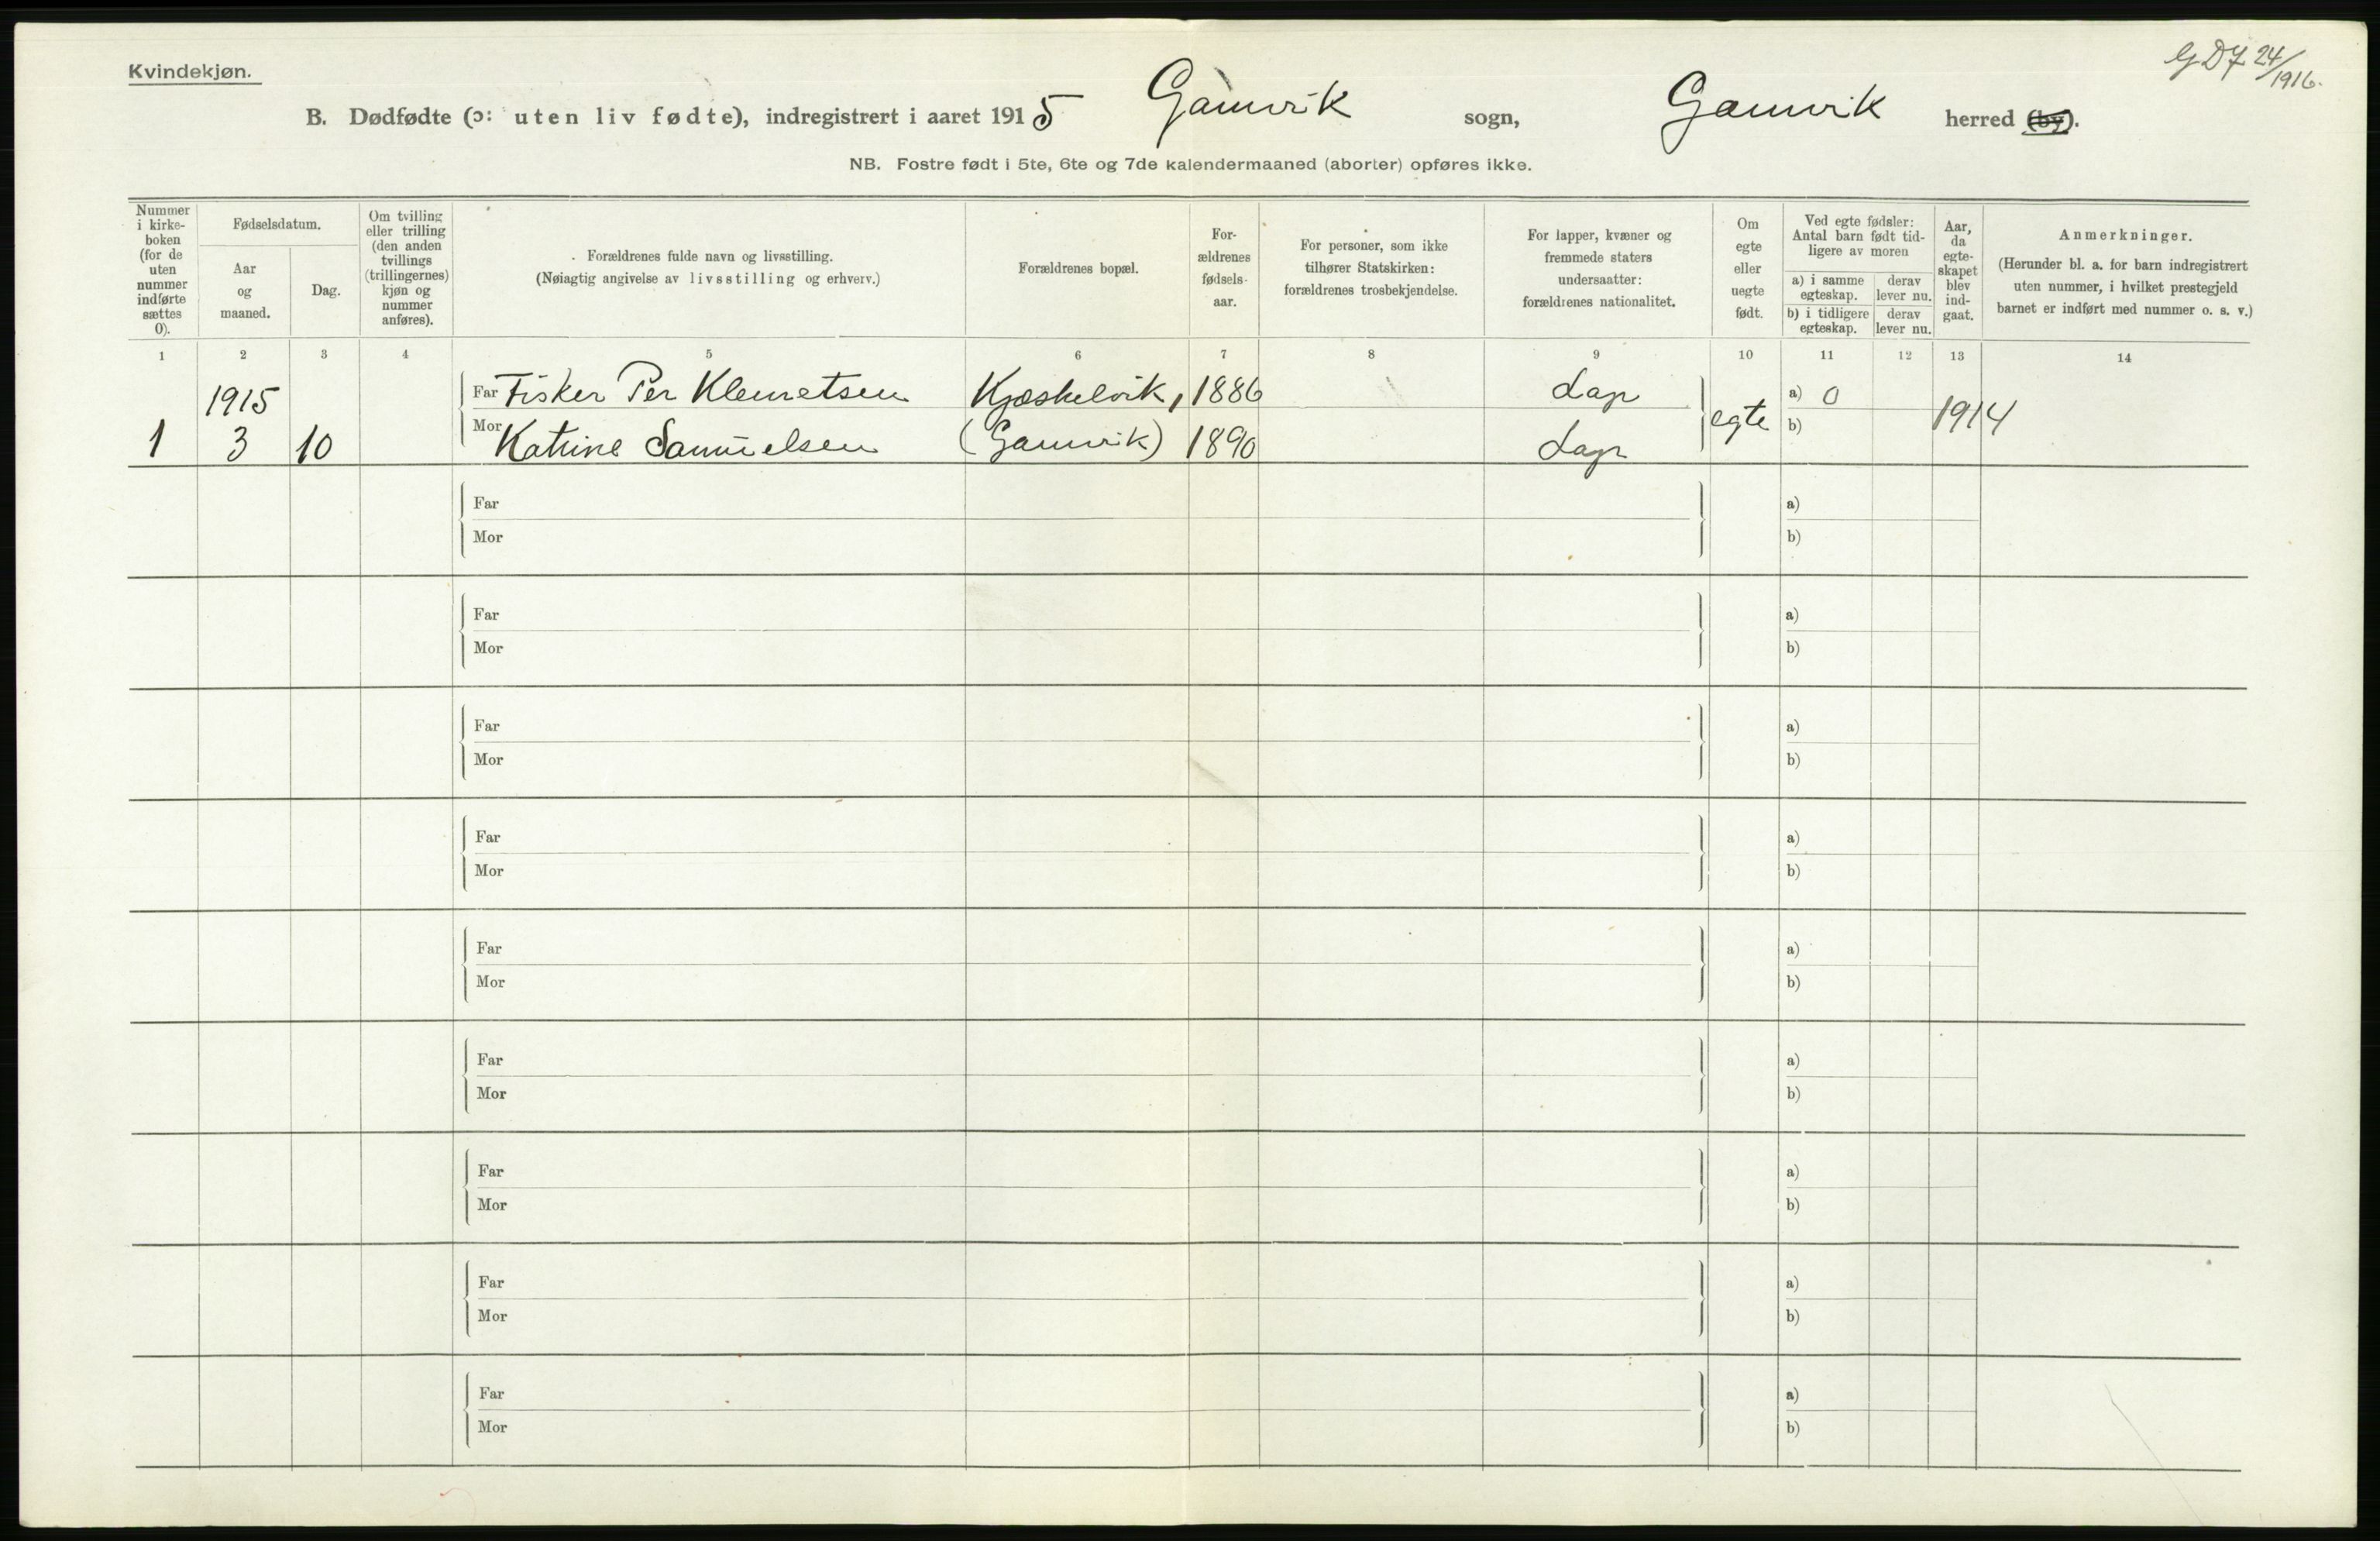 Kvindekjøn.
24/1916.
B. Dødfødte (ɔ: uten liv fødte), indregistrert i aaret 1915 Gamvik sogn, Gamvik herred (by).
NB. Fostre født i 5te, 6te og 7de kalendermaaned (aborter) opføres ikke.
Nummer
i kirke-
boken
(for de
uten
nummer
indførte
sættes
0).
Fødselsdatum.
Aar
og
maaned.
Dag.
Om tvilling
eller trilling
(den anden
tvillings
(trillingernes)
kjøn og
nummer
anføres).
Forældrenes fulde navn og livsstilling.
(Nøiagtig angivelse av livsstilling og erhverv.)
Forældrenes bopæl.
For-
ældrenes
fødsels-
aar.
For personer, som ikke
tilhører Statskirken:
forældrenes trosbekjendelse.
For lapper, kvæner og
fremmede staters
undersaatter:
forældrenes nationalitet.
Om
egte
eller
uegte
født.
Ved egte fødsler:
Antal barn født tid-
ligere av moren
a) i samme
egteskap.
derav
lever nu.
b) i tidligere
egteskap.
derav
lever nu.
Aar,
da
egte-
skapet
blev
ind-
gaat.
Anmerkninger.
(Herunder bl. a. for barn indregistrert
uten nummer, i hvilket prestegjeld
barnet er indført med nummer o. s. v.)
1 2 3 4 5 6 7 8 9 10 11 12 13 14
1915 Far Fisker Per Klemetsen Kjøskelvik, 1886 Lap a) 0
1 3 10 Mor Katrine Samuelsen (Gamvik) 1890 Lap egte b) 1914
Far a)
Mor b)
Far a)
Mor b)
Far a)
Mor b)
Far a)
Mor b)
Far a)
Mor b)
Far a)
Mor b)
Far a)
Mor b)
Far a)
Mor b)
Far a)
Mor b)